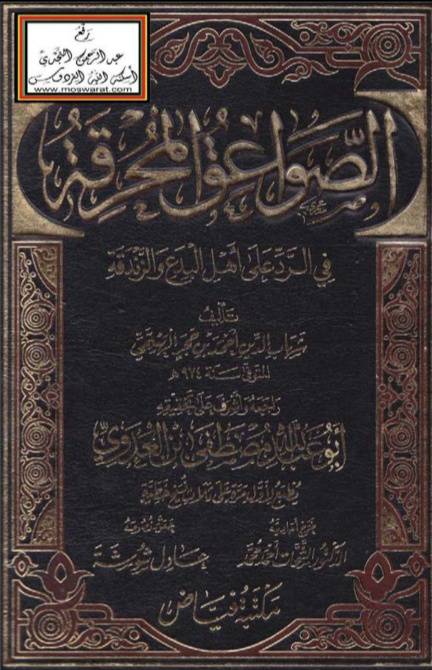 رفع
عبد الرحمن النجدي
أسكنه الله الفردوس
www.moswarat.com
الصواعق المحرقة
في الرد على أهل البدع والزندقة
تأليف
شهاب الدين أحمد بن حجر الهيتمي
المتوفى سنة ٩٧٤ هـ
راجعه وأشرف على تحقيقه
أبو عبد الله مصطفى بن العدوي
يطبع لأول مرة على ثلاث نسخ خطية
عادل شوشة
مكتبة فياض